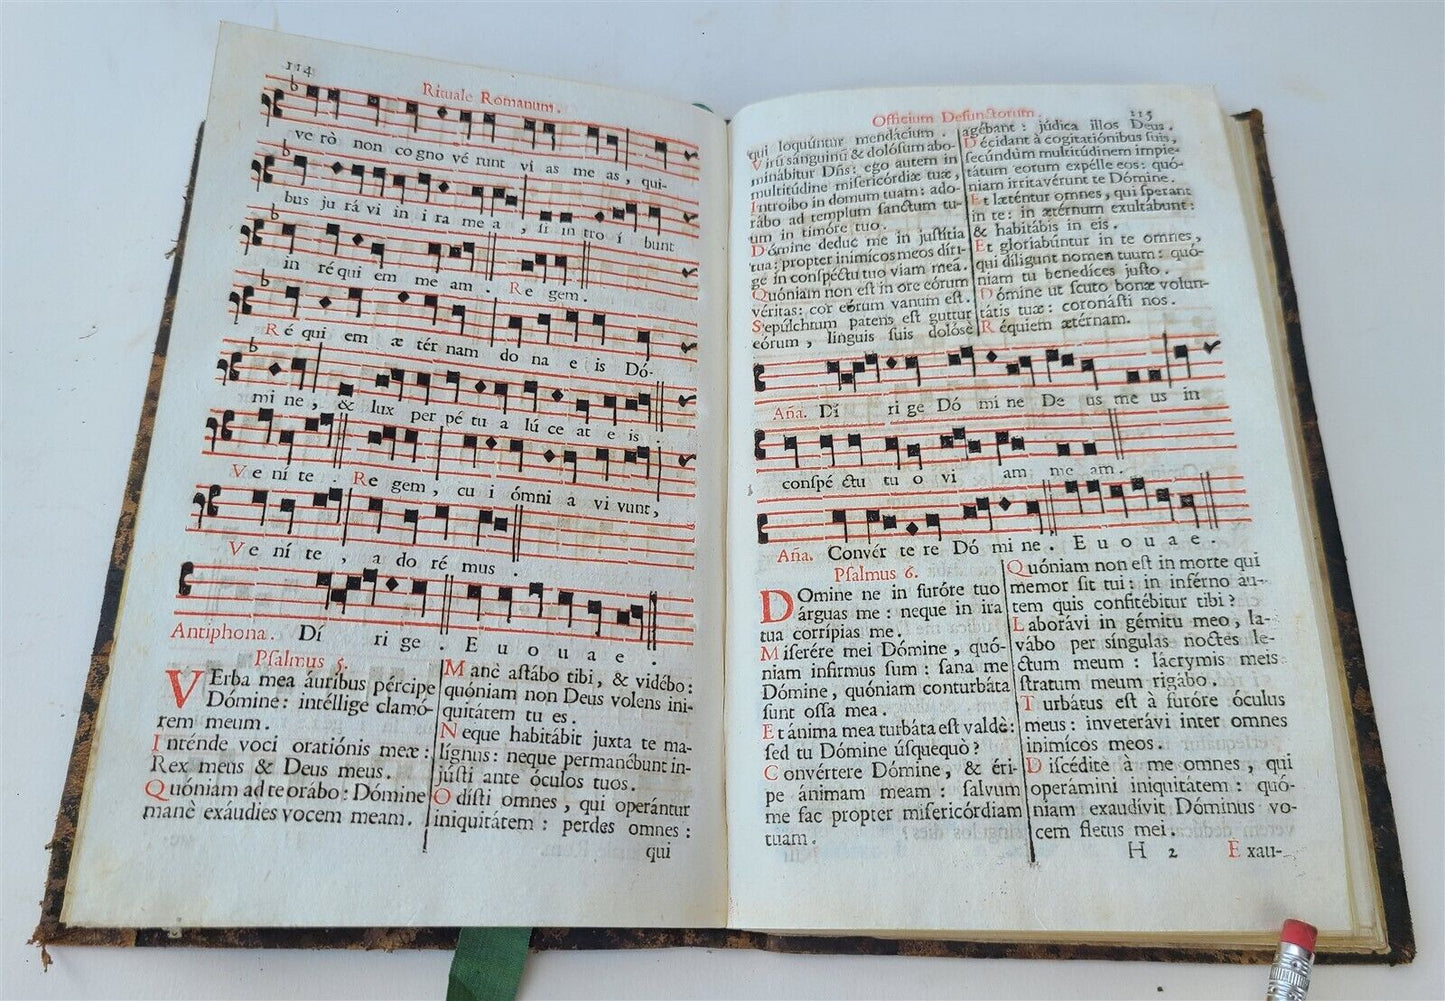 114
Rituale Romanum.
ve rò non co gno vé runt vi as me as, qui-
bus ju rá vi in i ra me a, si in tro í bunt
in ré qui em me am. Re gem.
Ré qui em æ tér nam do na e is Dó-
mi ne, & lux per pé tu a lú ce at e is.
Ve ní te. Re gem, cu i ómni a vi vunt,
Ve ní te, a do ré mus.
Antiphona. Dí ri ge. E u o u a e.
Psalmus 5.
VErba mea áuribus pércipe
Dómine: intéllige clamó-
rem meum.
Inténde voci oratiónis meæ:
Rex meus & Deus meus.
Quóniam ad te orábo: Dómine
manè exáudies vocem meam.
Manè astábo tibi, & vidébo:
quóniam non Deus volens ini-
quitátem tu es.
Neque habitábit juxta te ma-
lígnus: neque permanébunt in-
jústi ante óculos tuos.
Odísti omnes, qui operántur
iniquitátem: perdes omnes:
qui
Officium Defunctorum.
115
qui loquúntur mendácium.
Virũ sánguinũ & dolósum abo-
minábitur Dñs: ego autem in
multitúdine misericórdiæ tuæ,
Introíbo in domum tuam: ado-
rábo ad templum sanctum tu-
um in timóre tuo.
Dómine deduc me in justítia
tua: propter inimícos meos díri-
ge in conspéctu tuo viam mea.
Quóniam non est in ore eórum
véritas: cor eórum vanum est.
Sepúlchrum patens est guttur
eórum, linguis suis dolósè
agébant: júdica illos Deus.
Décidant à cogitatiónibus suis,
secúndùm multitúdinem impie-
tátum eorum expélle eos: quó-
niam irritavérunt te Dómine.
Et læténtur omnes, qui sperant
in te: in ætérnum exultábunt:
& habitábis in eis.
Et gloriabúntur in te omnes,
qui díligunt nomen tuum: quó-
niam tu benedíces justo.
Dómine ut scuto bonæ volun-
tátis tuæ: coronásti nos.
Réquiem ætérnam.
Aña. Dí ri ge Dó mi ne De us me us in
conspé ctu tu o vi am me am.
Aña. Convér te re Dó mi ne. E u o u a e.
Psalmus 6.
DOmine ne in furóre tuo
árguas me: neque in ira
tua corrípias me.
Miserére mei Dómine, quó-
niam infirmus sum: sana me
Dómine, quóniam conturbáta
sunt ossa mea.
Et ánima mea turbáta est valdè:
sed tu Dómine úsquequò?
Convértere Dómine, & éri-
pe ánimam meam: salvum
me fac propter misericórdiam
tuam.
Quóniam non est in morte qui
memor sit tui: in inférno au-
tem quis confitébitur tibi?
Laborávi in gémitu meo, la-
vábo per síngulas noctes le-
ctum meum: lácrymis meis
stratum meum rigábo.
Turbátus est à furóre óculus
meus: inveterávi inter omnes
inimícos meos.
Discédite à me omnes, qui
operámini iniquitátem: quó-
niam exaudívit Dóminus vo-
cem fletus mei.
H 2 Exau-